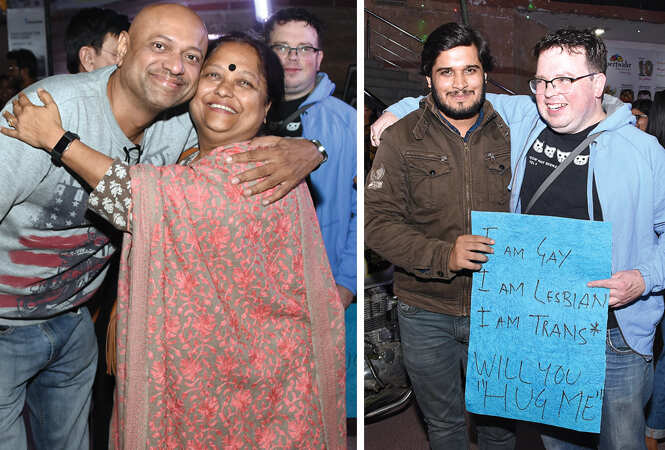 I AM GAY
I AM LESBIAN
I AM TRANS*
WILL YOU
"HUG ME"